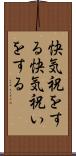 快気祝をす
る快気祝い
をする